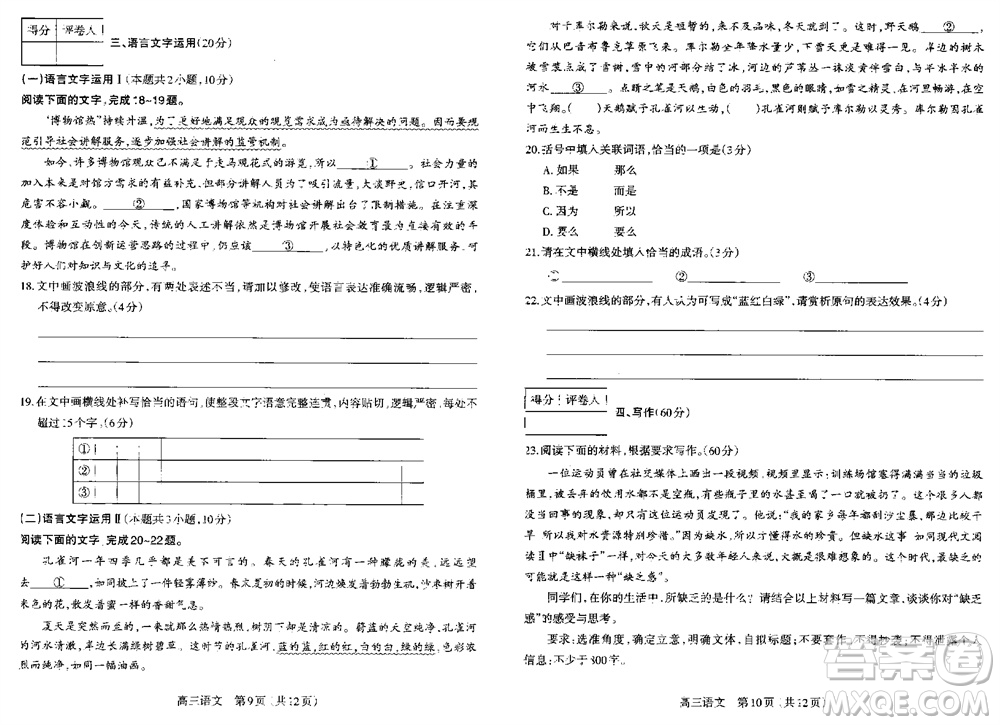 得分 评卷人
三、语言文字运用(20分)
(一)语言文字运用Ⅰ(本题共2小题,10分)
阅读下面的文字,完成18~19题。
“博物馆热”持续升温,为更好地满足观众的观览需求有一些亟待解决的问题。因而要规
范引导社会讲解服务,逐步加强社会讲解的监管机制。
如今,许多博物馆观众已不满足于走马观花式的游览,如 ① 。社会力量的
加入本来是对馆方需求的有益补充,但有些讲解员为了吸引流量,大谈野史,信口开河,其
危害不容小觑。 ② ,国家博物馆等机构对社会讲解出台了限制措施。在注重深
度体验的今天,传统的人工讲解依然是博物馆开展公共教育最重要、最直接、最有效的手
段。博物馆在创新运营思路的过程中,仍应重 ③ ,以特色化的优质讲解服务,呵
护好人们对知识与文化的追寻。
18.文中画波浪线的部分,有两处表述不当,请加以修改,使语言表达准确流畅,逻辑严密,
不得改变原意。(4分)
19.在文中画横线处补写恰当的语句,使整段文字语意完整连贯,内容贴切,逻辑严密,每处不
超过15个字。(6分)
①
②
③
(二)语言文字运用Ⅱ(本题共3小题,10分)
阅读下面的文字,完成20~22题。
孔雀河一年四季几乎都是美不可言的。春天的孔雀河有一种朦胧的美,远远望
去 ① ,水面上披了一件轻雾薄纱。春文夏初的时候,河边焕发着勃勃生机,沙枣开着
米色的花,散发着蜜一样的香甜气息。
夏天是突然而至的,满大街滚烫的时候,河边却是清凉的。蔚蓝的天空下,孔雀河的
河水清澈,岸上长满绿树碧草。这时节的孔雀河,蓝的蓝,红的红,白的白,绿的绿,干净
而纯净,如同一幅油画。
高三语文 第9页(共12页)
对于库尔勒来说,秋天是短暂的,来不及品味,冬天就到了。冬天时,野天鹅 ②
从巴音布鲁克草原飞来。库尔勒全年降水量少,下雪天更是难得一见。岸边的树木
被雪浸染,芦苇上落着雪,雪中的河好静,河边的芦苇丛一半焕发着金黄色,与半冰半水的
河水 ③ ,优雅至极。点睛之笔是天鹅,白色的羽毛,宛如雪之精灵,在河里畅游,在空
中飞翔。( )天鹅赋予孔雀河以生动,( )孔雀河则赋予库尔勒以灵秀。库尔勒因孔雀
河而生动。
20.活号中填入关联词语,恰当的一项是(3分)
A.如果 那么
B.不是 而是
C.因为 所以
D.要么 要么
21.请在文中横线处填入恰当的成语。(3分)
① ② ③
22.文中画波浪线的部分,有人认为可写成“蓝红白绿”,请赏析原句的表达效果。(4分)
得分 评卷人
四、写作(60分)
23.阅读下面的材料,根据要求写作。(60分)
一位运动员曾在社交媒体上晒出一段视频,视频显示:训练场馆里塞得满满当当的垃圾
桶里,被丢弃的饮用水都不是空瓶,有些瓶子里的水甚至喝了一口就被扔了。很多人对这件
事情的现象,感到心疼和气愤。为什么这位运动员发现了?他说:“我的家乡每年都沙尘暴,很缺水,比较干
旱,所以我对水资源特别珍惜。”是的,没有缺过水的人不懂得水的珍贵。但缺水这事,如同现代文阅
读题目中“缺袜子”一样,对今天的大多数年轻人来说,大概是很难想象的。这个时代,最缺乏的
可能就是这样的一种“缺乏感”。
同学们,在你的生活中,所缺乏的是什么?请结合以上材料写一篇文章,谈谈你对“缺乏
感”的感受与思考。
要求:选准角度,确定立意,明确文体,自拟标题;不要套作,不得抄袭;不得泄露个人
信息;不少于800字。
高三语文 第10页(共12页)
答案圈
MXQE.COM